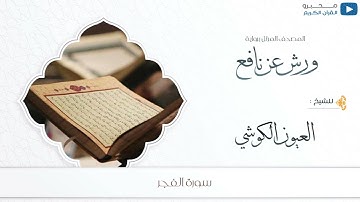 محبرو
القرآن الكريم
المصحف المنزل برواية
ورش عن نافع
للشيخ :
العيون الكوشي
سورة الفجر